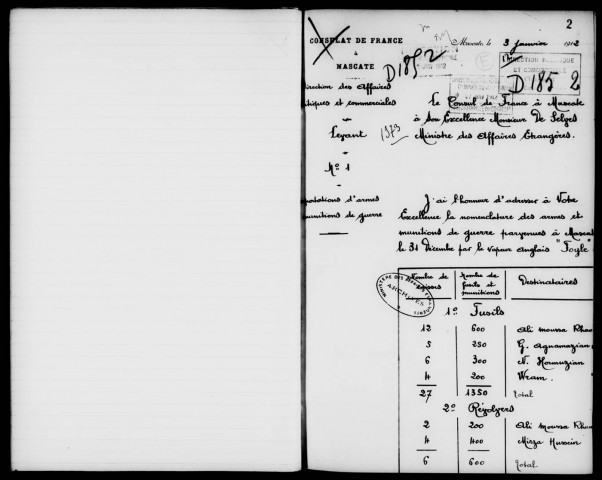 2
CONSULAT DE FRANCE
à
MASCATE
Mascate, le 3 janvier 1912
D 185 2
DIRECTION POLITIQUE
ET COMMERCIALE
D 185 2
irection des Affaires
itiques et commerciales
Levant
1373
Nº 1
portations d'armes
munitions de guerre
Le Consul de France à Mascate
à Son Excellence Monsieur De Selves
Ministre des Affaires Etrangères.
J'ai l'honneur d'adresser à Votre
Excellence la nomenclature des armes et
munitions de guerre parvenues à Mascat
le 31 Décembre par le vapeur anglais "Foyle"
MINISTERE DES AFFAIRES ETRANGERES
ARCHIVES
Nombre de caisses | Nombre de fusils et munitions | Destinataires
1º Fusils
12 600 Ali moussa Khan
5 250 G. Aguamazian
6 300 N. Hormuzian
4 200 Wram
27 1350 Total
2º Révolvers
2 200 Ali moussa Khan
4 400 Mirza Hussein
6 600 Total